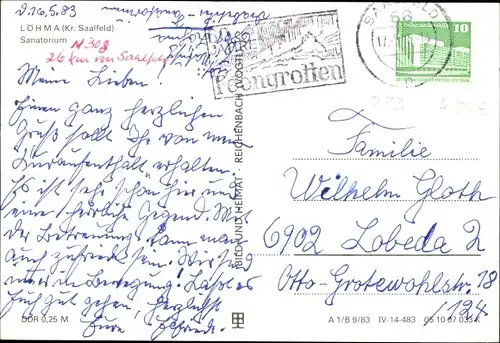 D. 16.5.83
LÖHMA (Kr. Saalfeld)
Sanatorium
N 308
26 km von Saalfeld
JAHRE
Feengrotten
SAALFELD
68
17.
10
Meine Lieben.
Einen ganz herzlichen
Gruß sollt Ihr von mei
Kuraufenthalt erhalten.
Es ist sehr schön hier und
eine herrliche Gegend. Mit
der Betreuung kann man
auch zufrieden sein. Wir sind
immer in Bewegung. Laßt es
Euch gut gehen, herzlichst
Eure
DDR 0,25 M
BILD UND HEIMAT REICHENBACH (VOGTL)
Familie
Wilhelm Gloth
6902 Lobeda 2
Otto-Grotewohlstr. 18
/124
A 1/B 9/83 IV-14-483 05 10 07 033 K